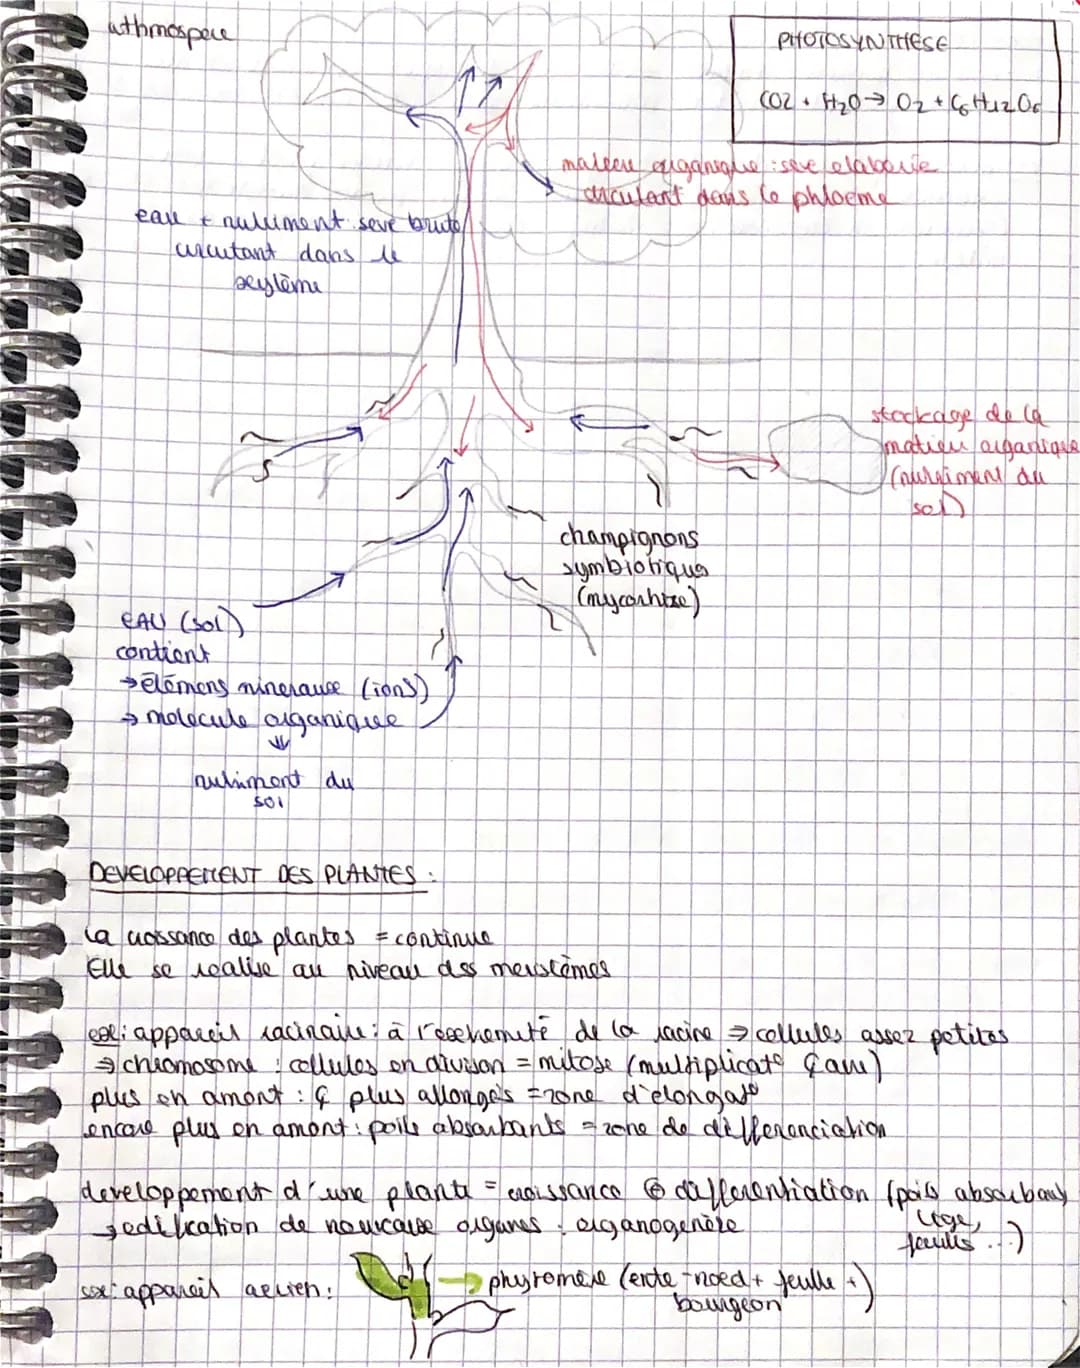 athmospere
PHOTOSYNTHESE
CO2 + H2O → O2 + C6H12O6
matiere organique : seve elaborée
circulant dans le phloeme
eau + nutriment seve brute
circulant dans le
xylème
stockage de la
matiere organique
(nutriment du
sol)
champignons
symbiotiques
(mycorhize)
EAU (sol)
contient
→ élémens mineraux (ions)
→ molecule organique
⇓
nutriment du
sol
DEVELOPPEMENT DES PLANTES :
la croissance des plantes = continue
Elle se realise au niveau des meristèmes
ex: appareil racinaire : à l'exchemité de la racine ⇒ cellules assez petites
⇒ chromosome : cellules en division = mitose (multiplicat°
plus en amont : plus allongés = zone d'élongat°
encore plus en amont : poils absorbants = zone de differenciation
developpement d'une plante = croissance ⊕ differentiation (poils absorbant
tige,
feuilles ...)
→ edification de nouveaux organes : organogenèse
ex: appareil aerien :
→ phytomere (entre-noed + feuille +
bourgeon)